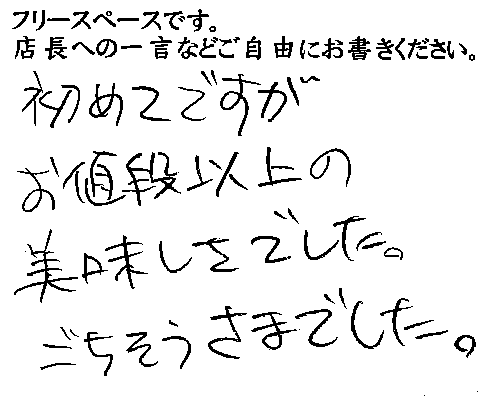 フリースペースです。
店長への一言などご自由にお書きください。
初めてですが
お値段以上の
美味しさでした。
ごちそうさまでした。